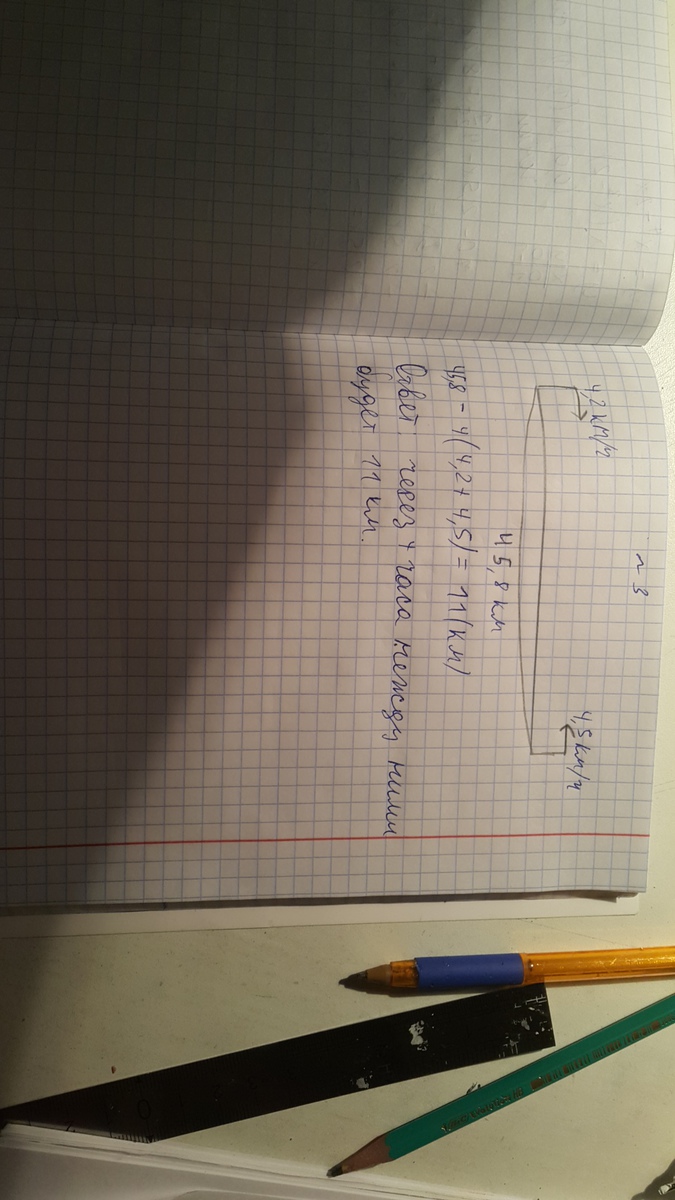 ~ 3
4,2 км/ч
4,5 км/ч
45,8 км
45,8 - 4(4,2 + 4,5) = 11(км)
Ответ: через 4 часа между ними
будет 11 км.